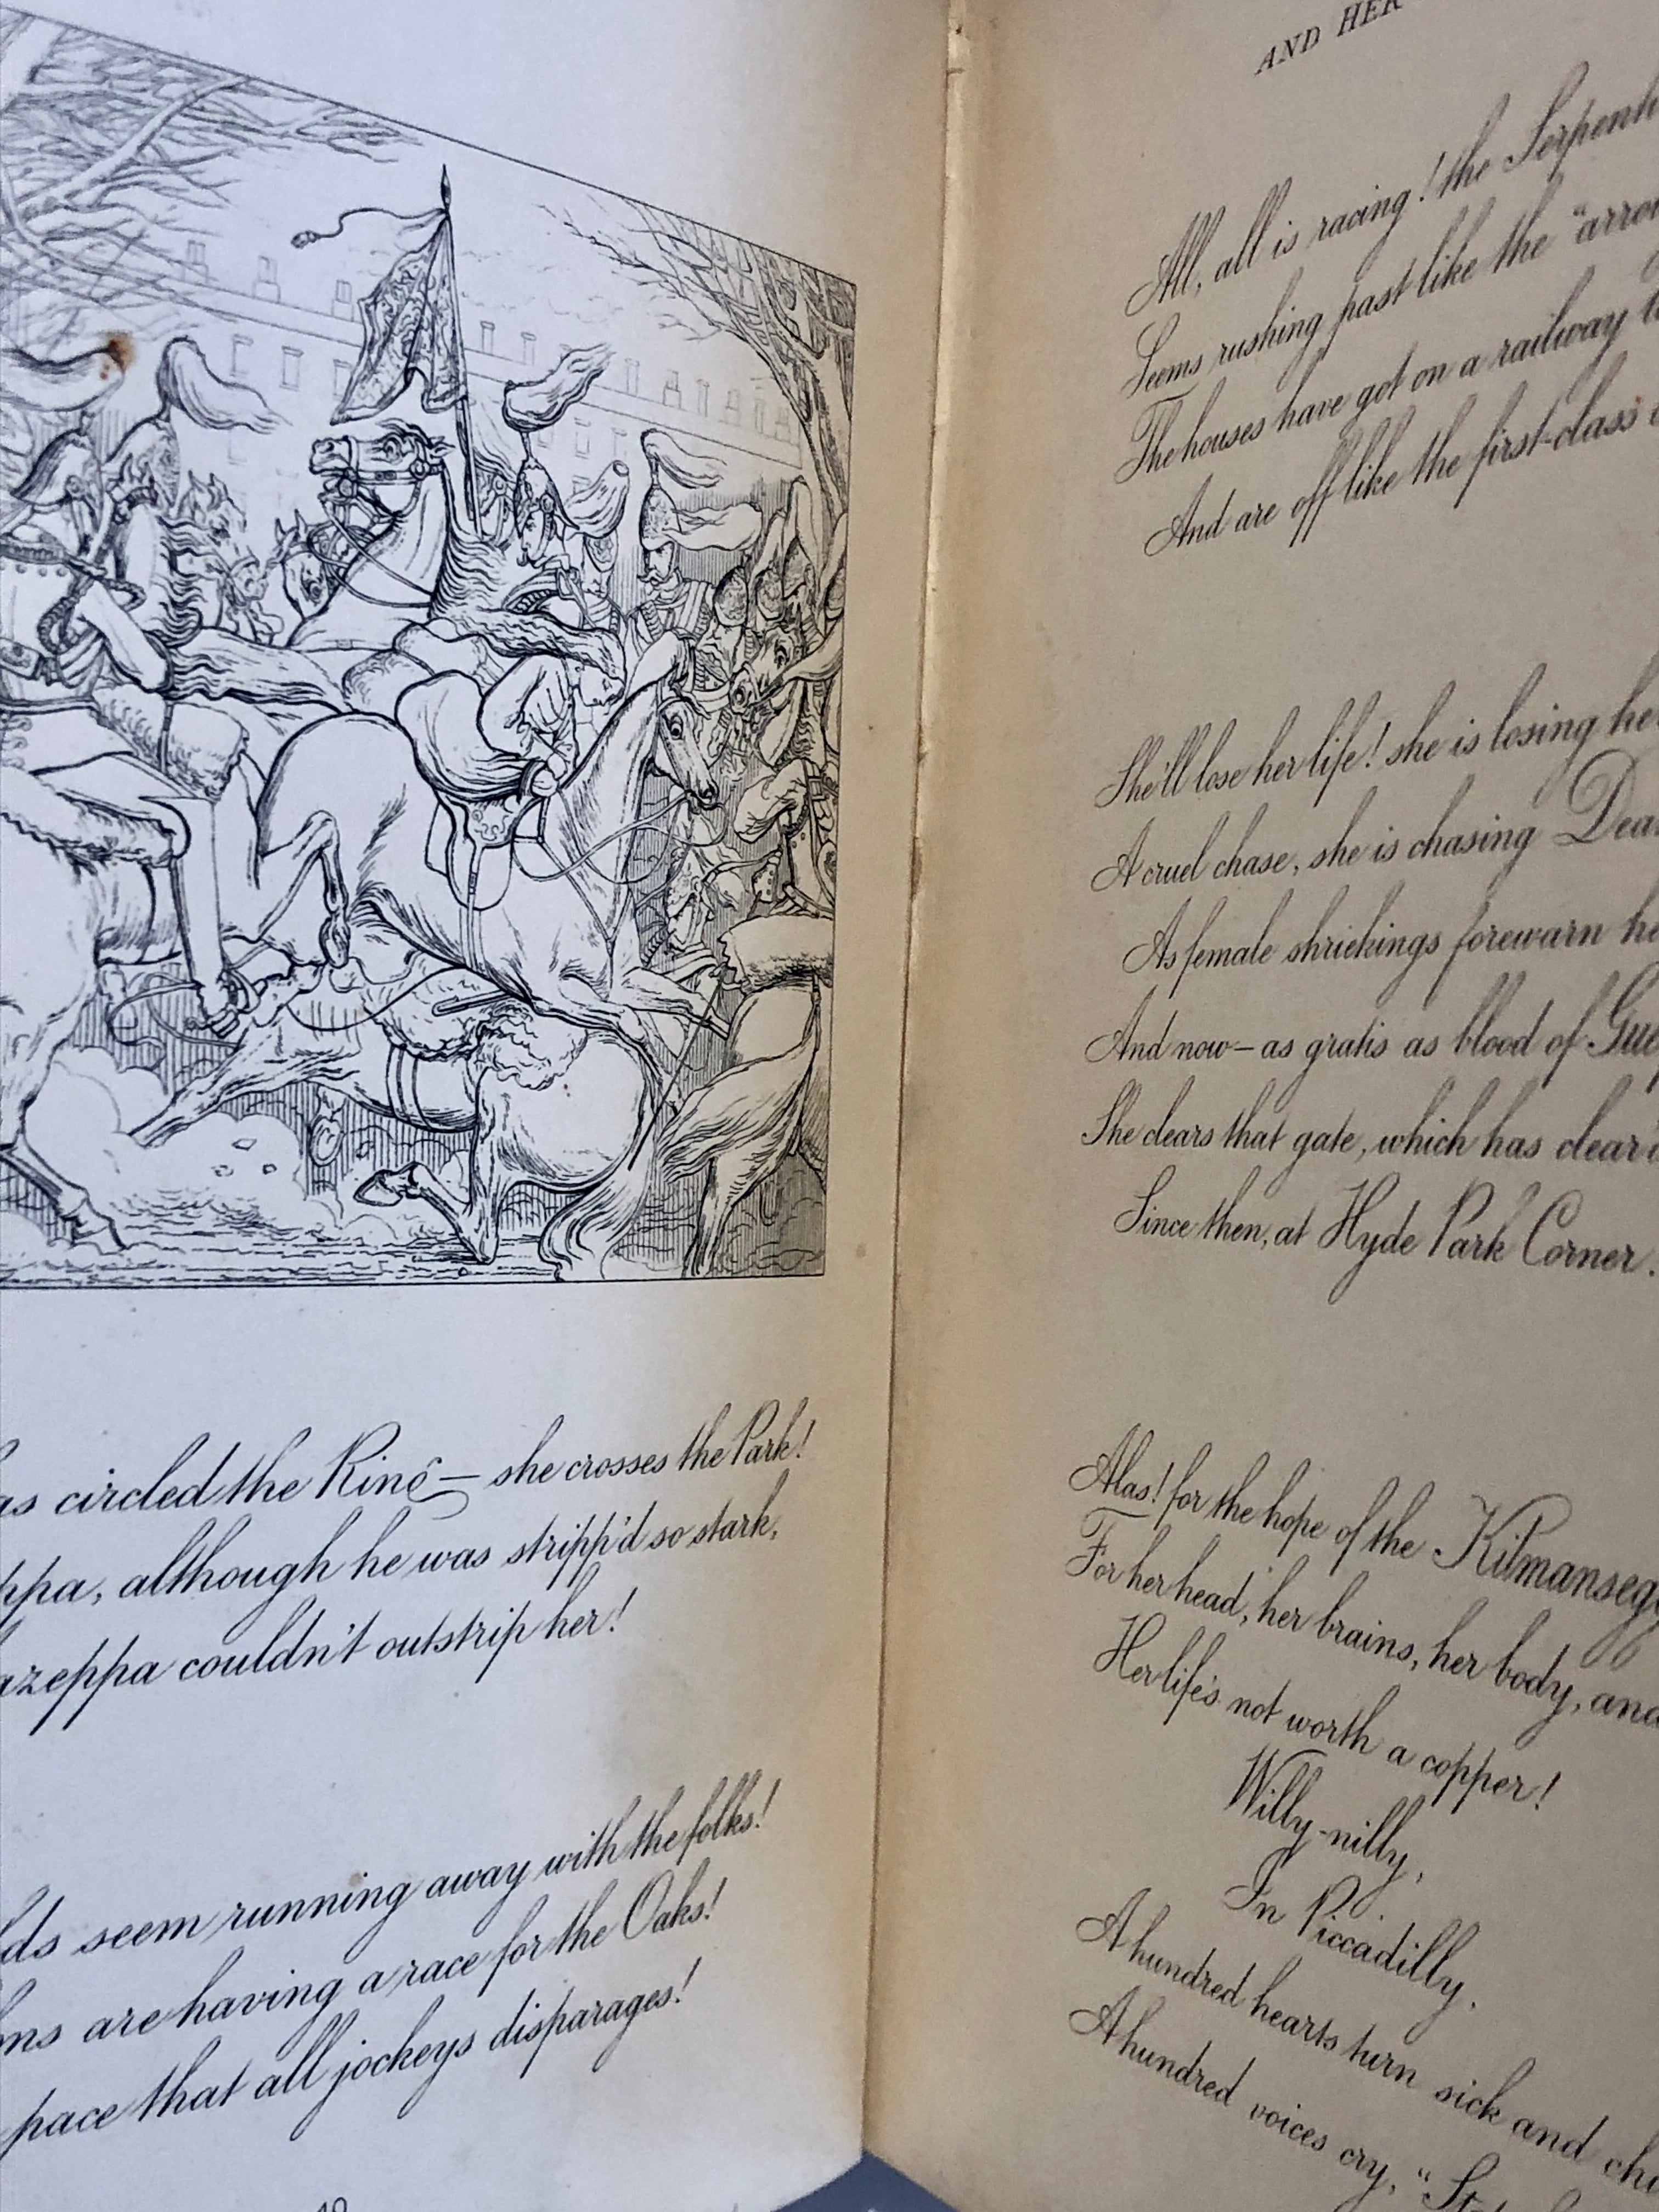 as circled the Ring — she crosses the Park!
ppa, although he was stripp'd so stark,
azeppa couldn't outstrip her!
ds seem running away with the folks!
ns are having a race for the Oaks!
pace that all jockeys disparages!
AND HER
All, all is racing! the Serpent
Seems rushing past like the "arro
The houses have got on a railway
And are off like the first-class
She'll lose her life! she is losing he
A cruel chase, she is chasing Dea
As female shriekings forewarn he
And now — as gratis as blood of Gue
She clears that gate, which has clear'd
Since then, at Hyde Park Corner.
Alas! for the hope of the Kilmanseg
For her head, her brains, her body, and
Her life's not worth a copper!
Willy-nilly,
In Piccadilly,
A hundred hearts turn sick and
A hundred voices cry,